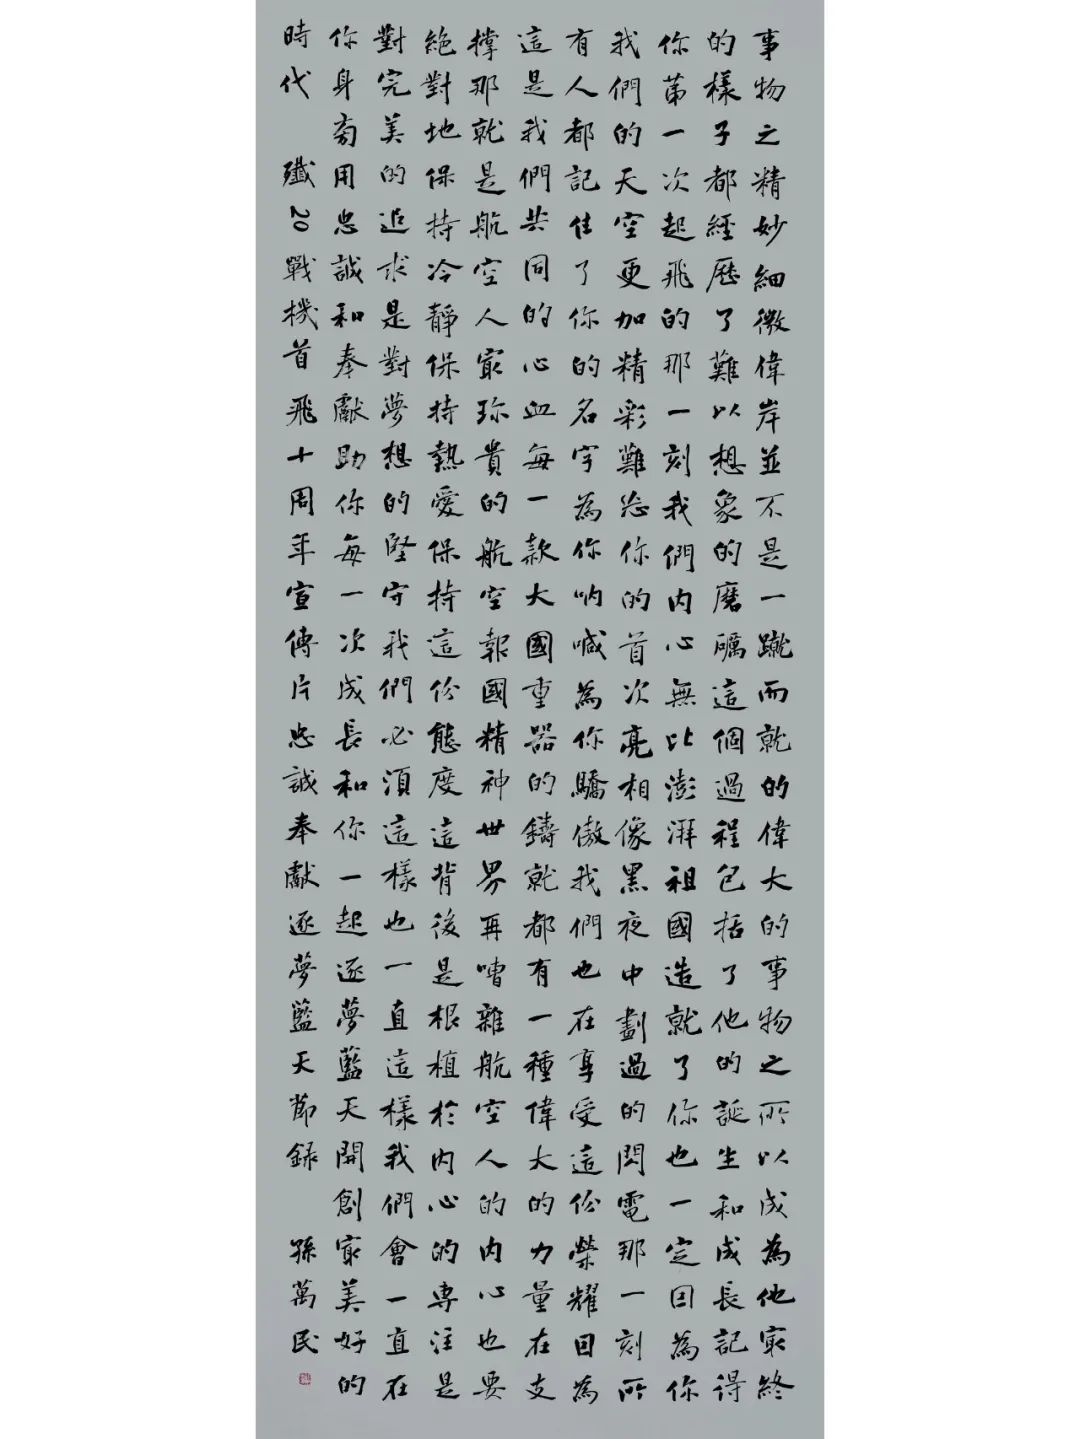 事物之精妙細微偉岸並不是一蹴而就的偉大的事物之所以成為他最終
的樣子都經歷了難以想象的磨礪這個過程包括了他的誕生和成長記得
你第一次起飛的那一刻我們內心無比澎湃祖國造就了你也一定因為你
我們的天空更加精彩難忘你的首次亮相像黑夜中劃過的閃電那一刻所
有人都記住了你的名字為你吶喊為你驕傲我們也在享受這份榮耀因為
這是我們共同的心血每一款大國重器的鑄就都有一種偉大的力量在支
撐那就是航空人最珍貴的航空報國精神世界再嘈雜航空人的內心也要
絕對地保持冷靜保持熱愛保持這份態度這背後是根植於內心的專注是
對完美的追求是對夢想的堅守我們必須這樣也一直這樣我們會一直在
你身旁用忠誠和奉獻助你每一次成長和你一起逐夢藍天開創最美好的
時代 殲20戰機首飛十周年宣傳片忠誠奉獻逐夢藍天節錄 孫萬民